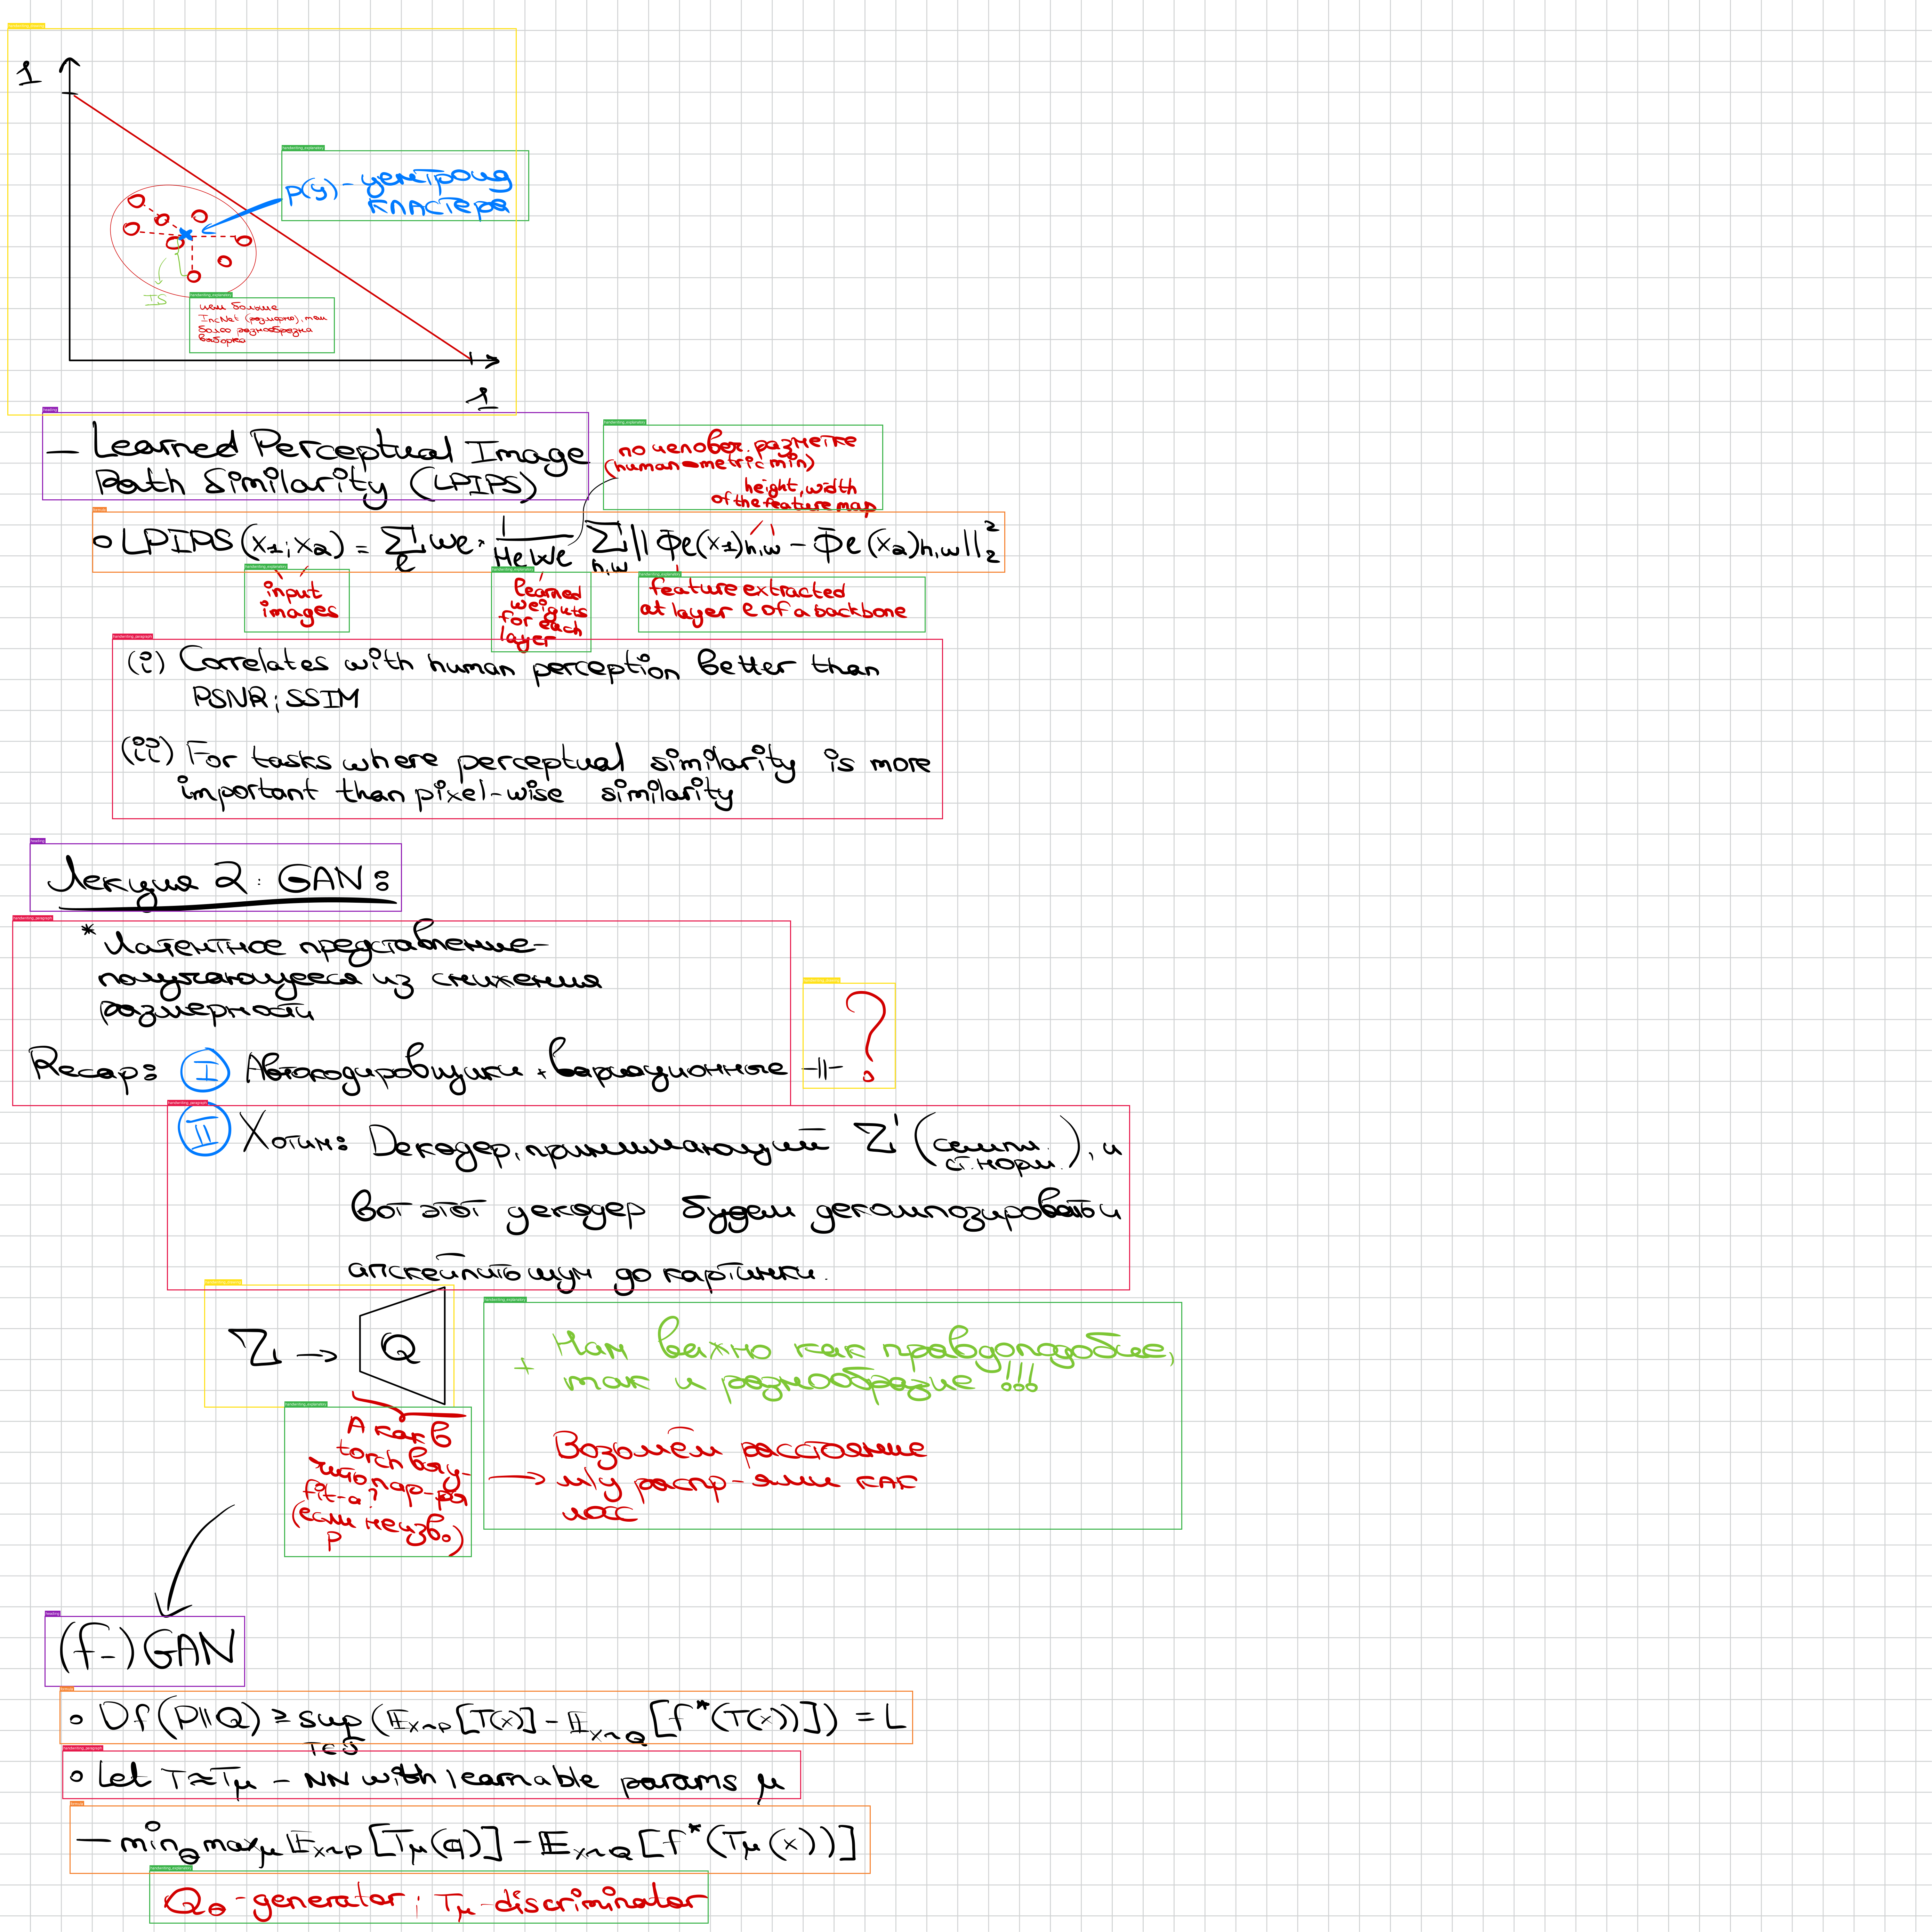 1
p(y) - центроид
кластера
IS
чем больше
IncNet (размерно), тем
более разнообразна
выборка
1
— Learned Perceptual Image
Path Similarity (LPIPS)
по человеч. разметке
(human metric min)
height, width
of the feature map
∘ LPIPS(x₁; x₂) = Σ_l w_l · 1/(H_l W_l) Σ_{h,w} || Φ_l(x₁)_{h,w} − Φ_l(x₂)_{h,w} ||₂²
input
images
learned
weights
for each
layer
feature extracted
at layer l of a backbone
(i) Correlates with human perception better than
PSNR; SSIM
(ii) For tasks where perceptual similarity is more
important than pixel-wise similarity
Лекция 2: GAN:
* Латентное представление-
получающееся из снижения
размерности
Recap: I Автокодировщики + вариационные -||- ?
II Хотим: Декодер, принимающий Z (семпл.
ст. норм.), и
вот этот декодер будем декомпозировать и
апскейлить шум до картинки.
Z → Q
+ Нам важно как правдоподобие,
так и разнообразие !!!
А как в
torch вяу-
чить пар-ры
fit-а?
(если неизв.)
P
Возьмём расстояние
→ м/у распр-ями как
лосс
(f-)GAN
∘ Df(P||Q) ≥ sup_{T∈𝒯} (𝔼_{x~p}[T(x)] − 𝔼_{x~Q}[f*(T(x))]) = L
∘ Let T≈T_μ - NN with learnable params μ
— min_θ max_μ 𝔼_{x~p}[T_μ()] − 𝔼_{x~Q}[f*(T_μ(x))]
Q_θ-generator; T_μ-discriminator